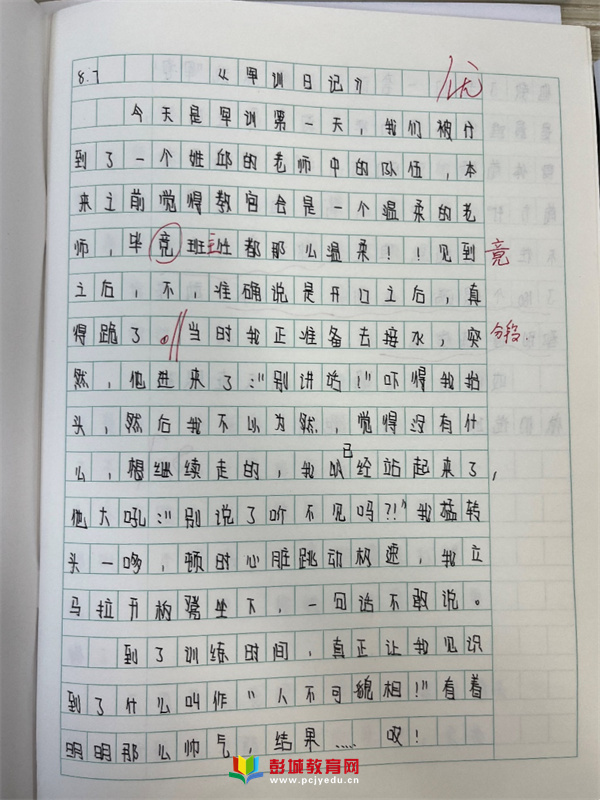 8.7 《军训日记》 优
今天是军训第一天，我们被什
到了一个姓邱的老师中的队伍，本
来之前觉得教官会是一个温柔的老
师，毕竟班主任都那么温柔！！见到 竟
之后，不，准确说是开口之后，真
得跪了。当时我正准备去接水，突 分段.
然，他进来了："别讲话！"吓得我抬
头，然后我不以为然，觉得没有什
么，想继续走的，我已经站起来了，
他大吼："别说了听不见吗?!"我猛转
头一哆，顿时心脏跳动极速，我立
马拉开椅凳坐下，一句话不敢说。
到了训练时间，真正让我见识
到了什么叫作"人不可貌相！"看着
明明那么帅气，结果…… 哎！
彭城教育网
www.pcjyedu.cn